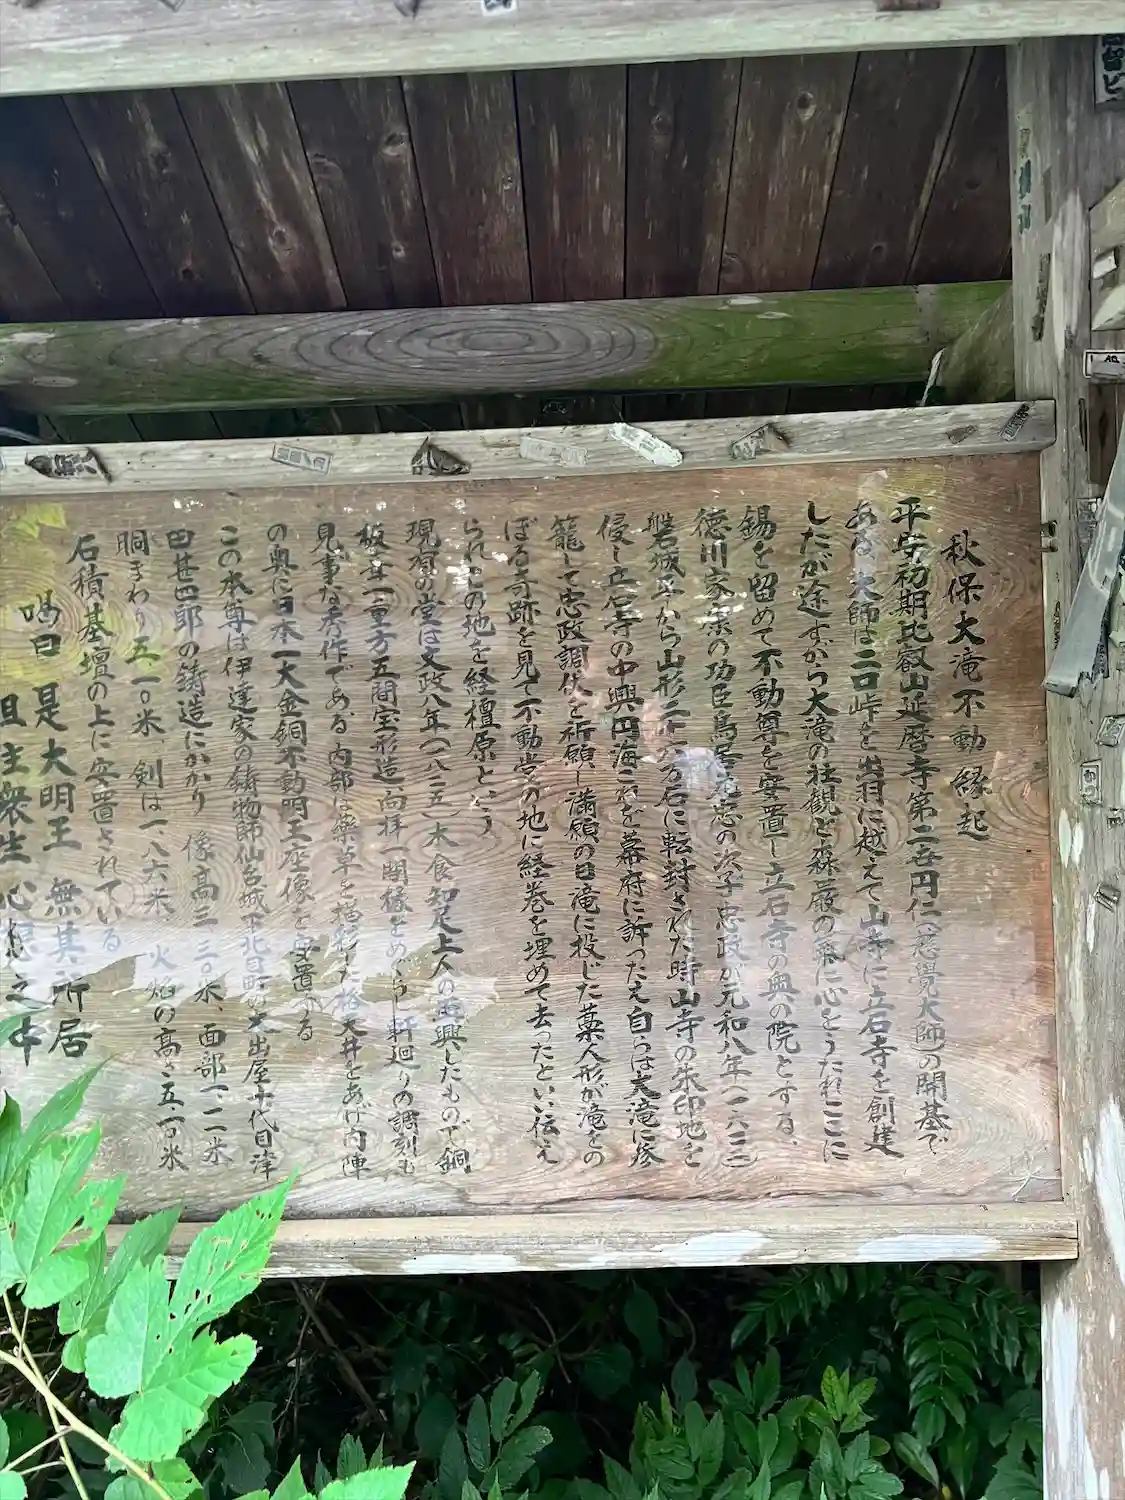 秋保大滝不動縁起
平安初期比叡山延暦寺第二名円仁(慈覺大師)の開基で
ある 大師は二口峠を出羽に越えて山寺に立石寺を創建
したが途すがら大滝の壮観と森厳の氣に心をうたれここに
錫を留めて不動尊を安置し立石寺の奥の院とする、
徳川家康の功臣鳥居元忠の次子忠政が元和八年(一六三三)
磐城平から山形二十の万石に転封された時山寺の朱印地を
侵し立石寺の中興円海これを幕府に訴ったえ自らは大滝に参
籠して忠政調伏を祈願し満願の日滝に投じた藁人形が滝をの
ぼる奇跡を見て不動堂の地に経巻を埋めて去ったといい伝え
られこの地を経檀原という
現有の堂は文政八年(一八二五)木食知足上人の再興したもので銅
板葺二重方五間宝形造、向拝一間縁をめぐらし軒廻りの調刻も
見事な秀作である、内部は薬草を描彩した格天井をあげ内陣
の奥に日本一大金銅不動明王座像を安置する
この本尊は伊達家の鋳物師仙台城下北目町の大出屋十代目津
田甚四郎の鋳造にかかり 像高三、三〇米、面部一、一一米
胴まわり五、一〇米、剣は一、八六米、火焰の高さ五、一〇米
石積基壇の上に安置されている
偈曰 是大明王 無其所居
但主衆生 心想之中